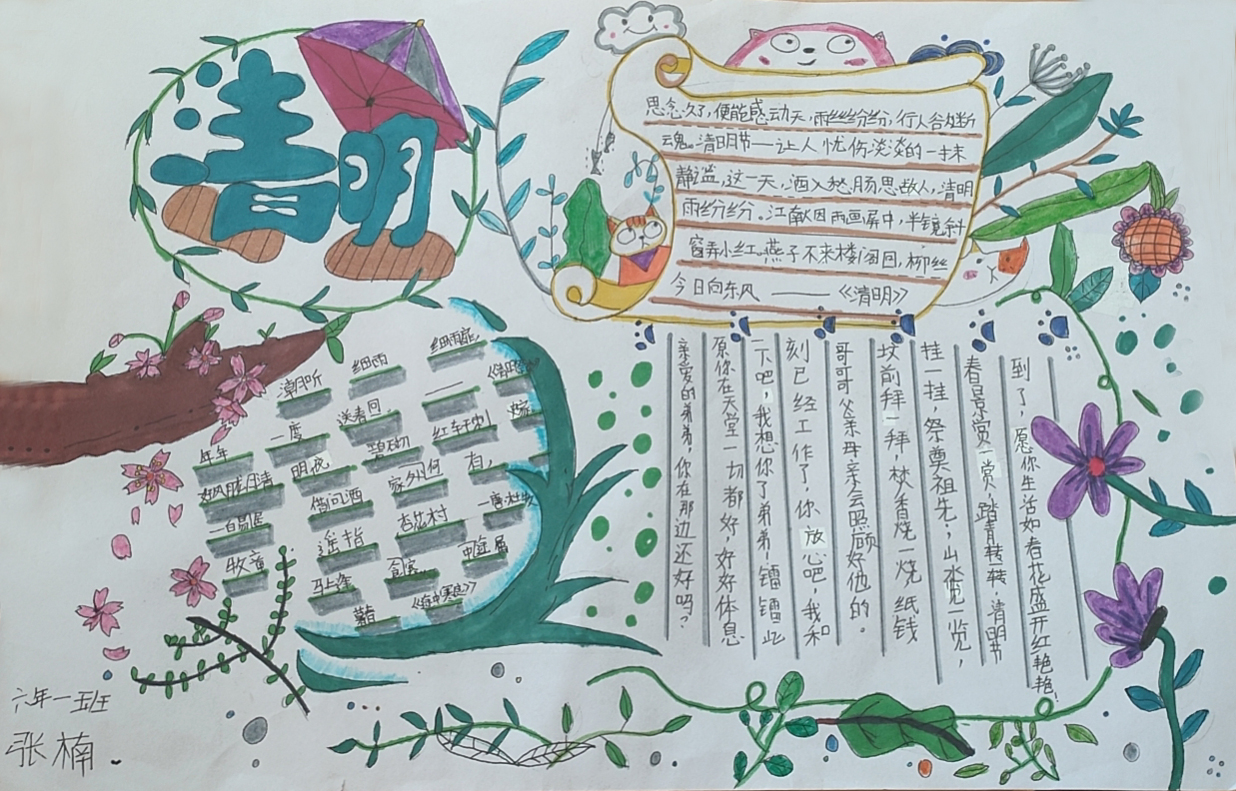 清明
思念久了,便能感动天,雨丝纷纷,行人各处断
魂。清明节——让人忧伤淡淡的一抹
静谧,这一天,酒入愁肠思故人,清明
雨纷纷。江因雨画屏中,半镜斜
窗弄小红,燕子不来楼阁回,柳丝
今日向东风 ——《清明》
听 细雨
年年 一度 送春回 ——
好风胧月清 明夜 碧砌 红轩刺
借问酒 家何 有,
牧童 遥指 杏花村
亲爱的弟弟,你在那边还好吗?
原你在天堂一切都好,好好体息
一下吧,我想你了弟弟!镭镭此
刻已经工作了,你放心吧,我和
哥哥哥父亲母亲会照顾好他的。
坟前拜一拜,焚香烧一烧纸钱
挂一挂,祭奠祖先,山水览一览,
春景赏一赏,踏青转转,清明节
到了,愿你生活如春花盛开红艳艳!
六年一班
张楠.